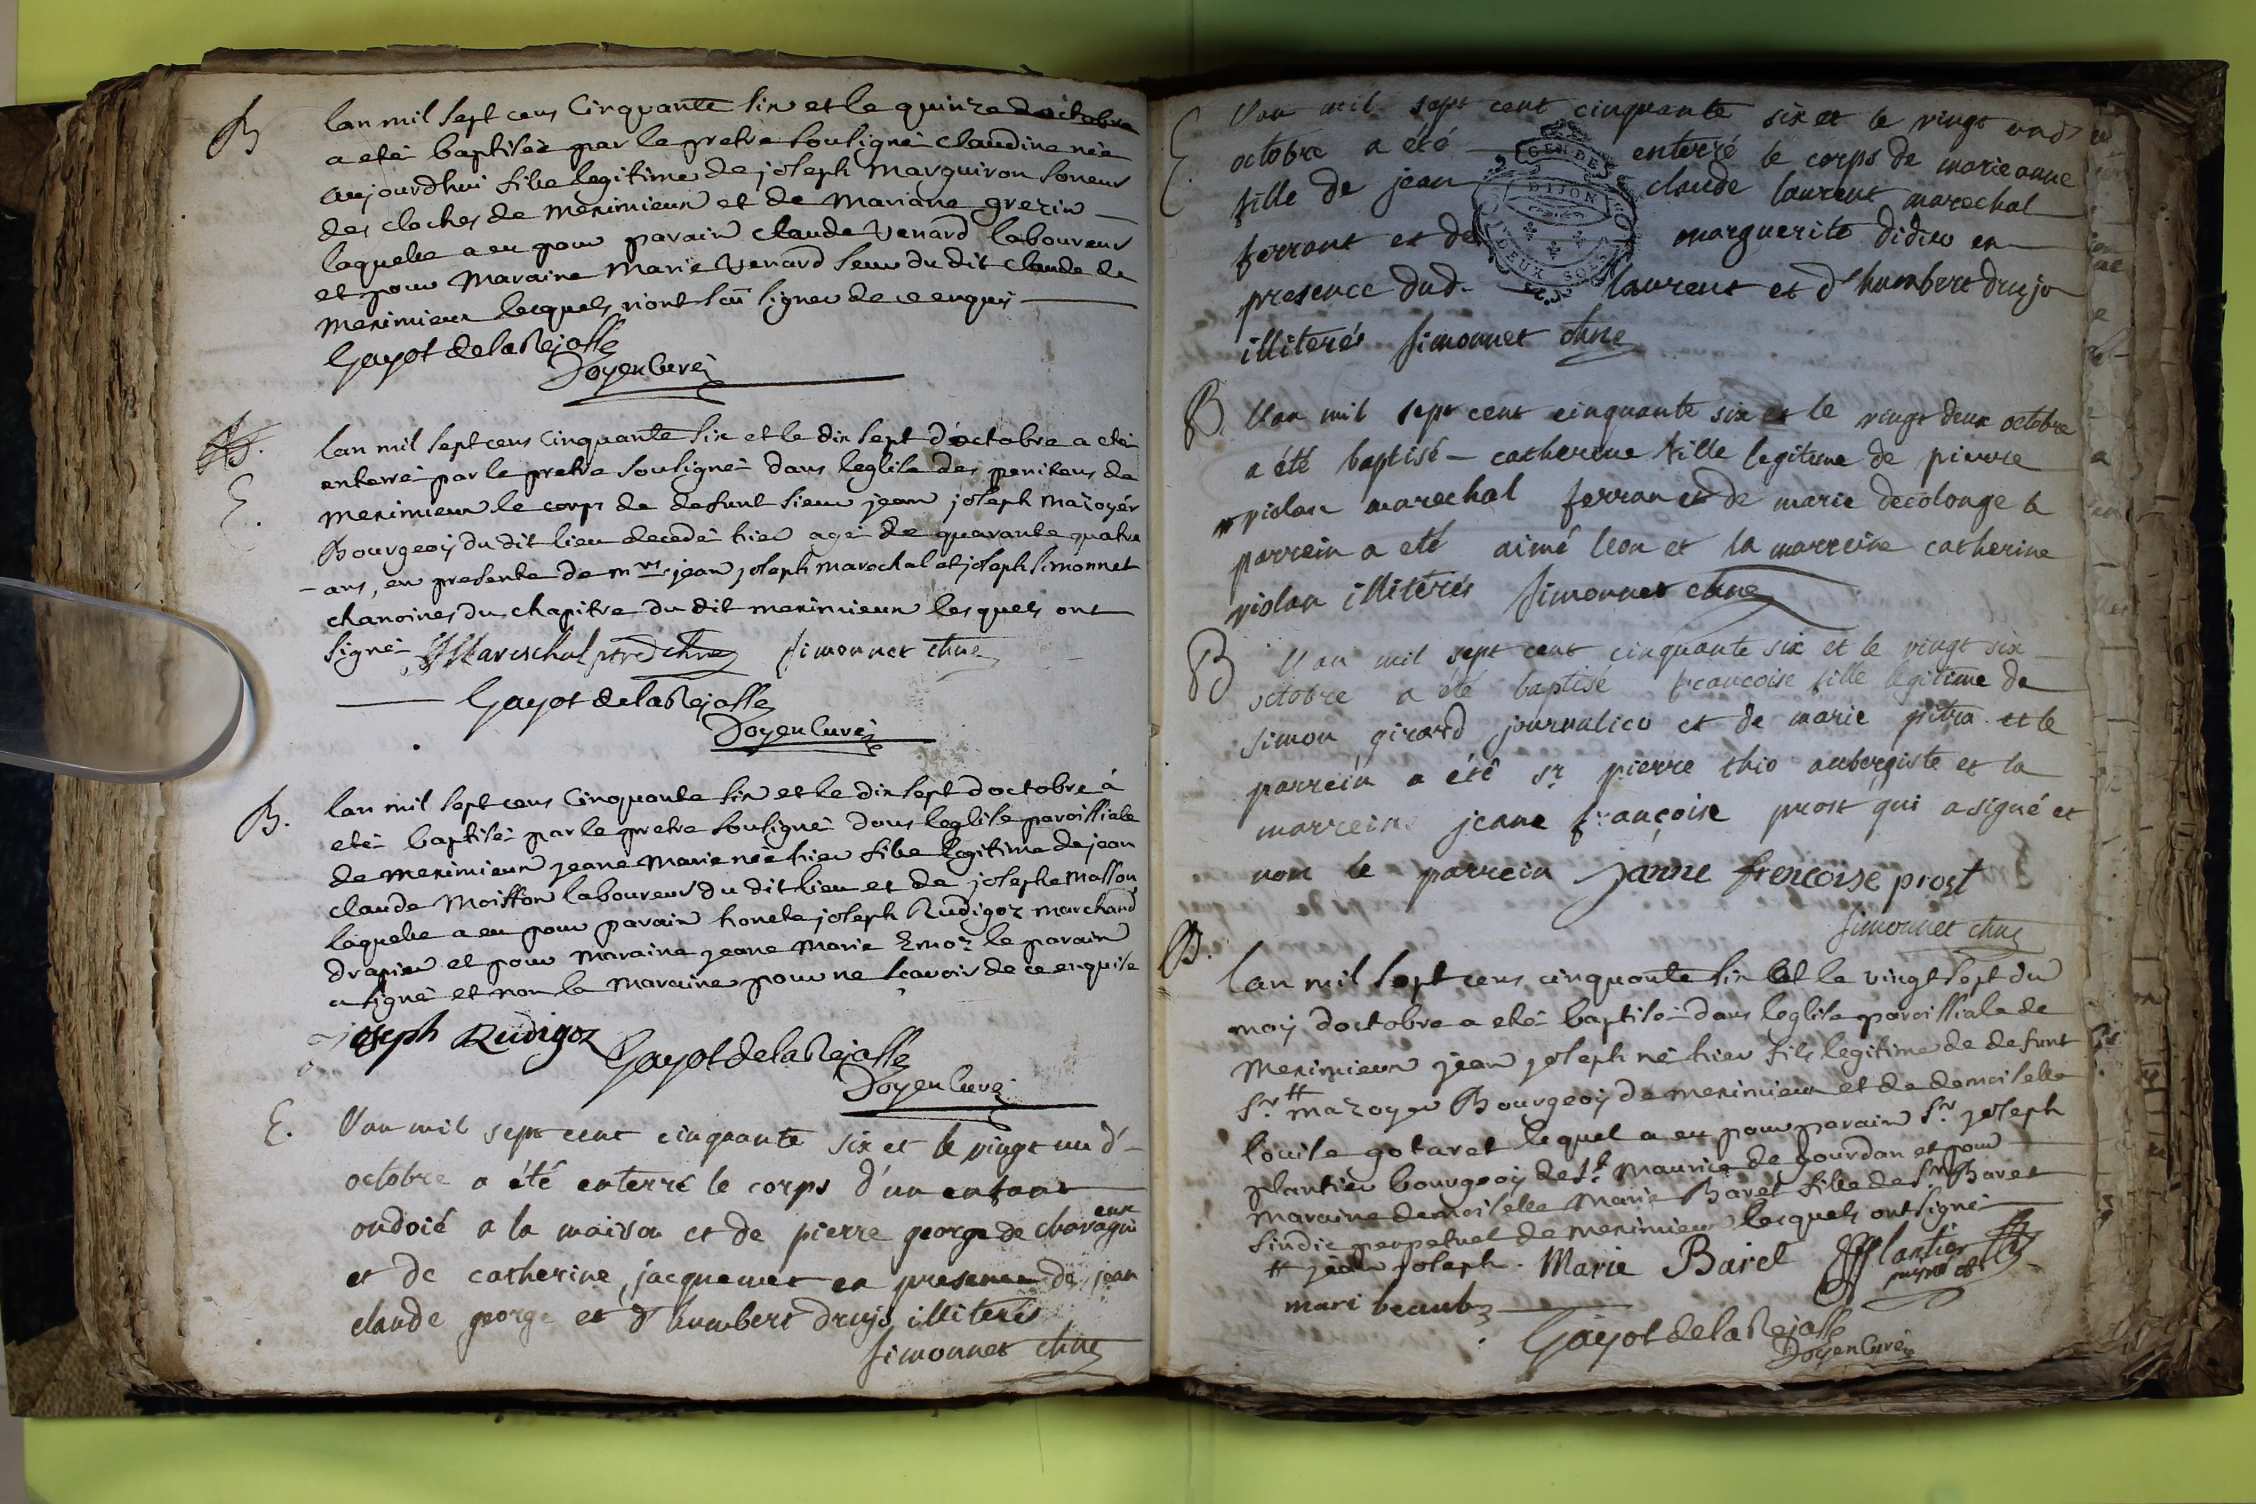 B
lan mil sept cens Cinquante six et le quinze doictobre
a eté baptisée par le pretre soussigné claudine née
aujourdhui fille legitime de joseph Marguiron soneur
des cloches de meximieux et de Mariane grezin
laquelle a eu pour parain claude Venard laboureur
et pour Maraine Marie Venard seur du dit claude de
meximieux lesquels n'ont sçu signer de ce enquis
Gayot de la Rejasse
Doyen Curé
B.
E.
lan mil sept cens Cinquante six et le dix sept d'octobre a eté
enterré par le pretre sousigné dans leglise des penitens de
meximieux le corps de defunt sieur jean joseph Mazoyér
Bourgeois du dit lieu decedé hier agé de quarante quatre
ans, en presente de mrs jean joseph marechal et joseph simonnet
chanoines du chapitre du dit meximieux lesquels ont
signé Mareschal ptre chne simonnet chne
Gayot de la Rejasse
Doyen Curé
B.
lan mil sept cens Cinquante six et le dix sept d octobre á
eté baptisé par le pretre sousigné dans leglise paroissiale
de meximieux jeane Marie née hier fille legitime de jean
claude Moisson laboureur du dit lieu et de josephe Masson
laquelle a eu pour parain honete joseph Rudigoz marchand
drapier et pour maraine jeane Marie le parain
a signé et non la maraine pour ne sçavoir de ce enquise
joseph Rudigoz Gayot de la Rejasse
Doyen Curé
E.
L'an mil sept cent cinquante six et le vingt un d'
octobre a été enterré le corps d'un enfant
ondoié a la maison et de pierre george de
et de catherine jacquemet en presence de jean
claude george et d'humbert drujo illiterés
simonnet chne
E.
L'an mil sept cent cinquante six et le vingt un d
octobre a été enterré le corps de marie anne
fille de jean claude laurent marechal
ferrant et de marguerite didier en
presence dud. laurent et d'humbert drujo
illiterés simonnet chne
B.
L'an mil sept cent cinquante six et le vingt deux octobre
a été baptisé catherine fille legitime de pierre
violan marechal ferran et de marie decolonge le
parrein a eté aimé leon et la marreine catherine
violan illiterés simonnet chne
B
L'an mil sept cent cinquante six et le vingt six
octobre a été baptisé francoise fille legitime de
simon girard journalier et de marie pitra et le
parrein a été sr. pierre thio aubergiste et la
marreine jeane françoise prost qui a signé et
non le parrein janne frencoise prost
simonnet chne
B.
lan mil sept cens cinquante six et le vingt sept du
moy doctobre a eté baptisé dans leglise paroissiale de
Meximieux jean joseph né hier fils legitime de defunt
sr. # mazoyer Bourgeois de meximieux et de demoiselle
louise gotaret lequel a eu pour parain sr. joseph
plantier bourgeois de st. Maurice de gourdan et pour
Maraine demoiselle Marie Baret fille de sr. Baret
sindic perpetuel de meximieux lesquels ont signé
# jean joseph. Marie Barel Plantier
mari
Gayot de la Rejasse
Doyen Curé
DIJON